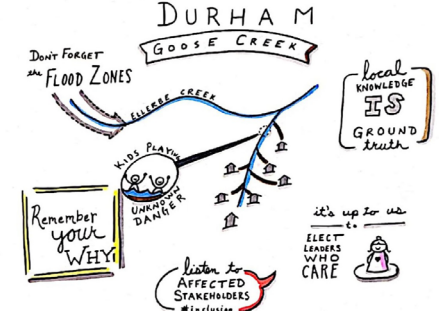 DURHAM
GOOSE CREEK
DON'T FORGET
the FLOOD ZONES
ELLERBE CREEK
local
KNOWLEDGE
IS
GROUND
truth
KIDS PLAYING
UNKNOWN
DANGER
Remember
your
WHY
it's up to us
to
ELECT
LEADERS
WHO
CARE
listen to
AFFECTED
STAKEHOLDERS
#inclusion